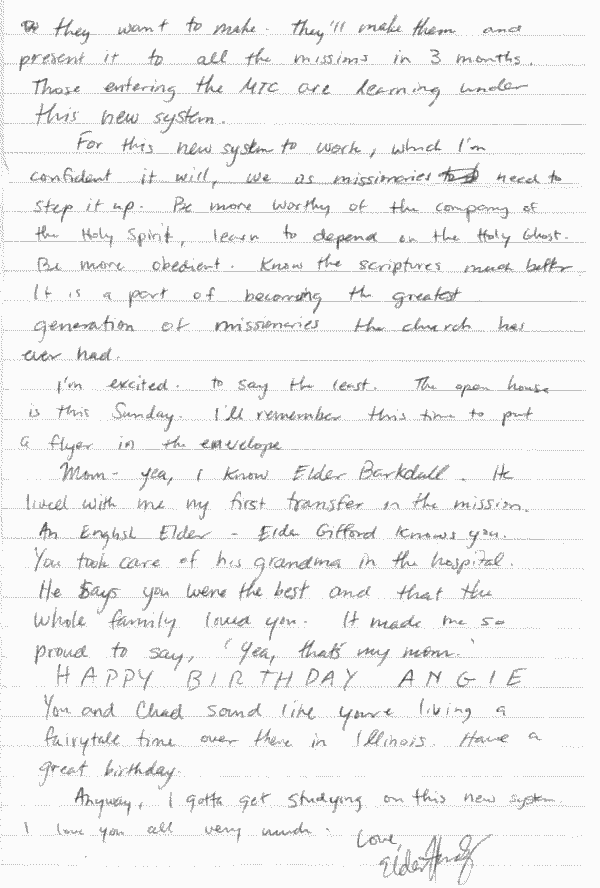 they want to make. They'll make them and
present it to all the missions in 3 months.
Those entering the MTC are learning under
this new system.
For this new system to work, which I'm
confident it will, we as missionaries need to
step it up. Be more worthy of the company of
the Holy Spirit, learn to depend on the Holy Ghost.
Be more obedient. Know the scriptures much better
It is a part of becoming the greatest
generation of missionaries the church has
ever had.
I'm excited. to say the least. The open house
is this Sunday. I'll remember this time to put
a flyer in the envelope
Mom- yea, I know Elder Barkdull. He
lived with me my first transfer in the mission.
An English Elder - Elder Gifford knows you.
You took care of his grandma in the hospital.
He says you were the best and that the
whole family loved you. It made me so
proud to say, "Yea, that's my mom."
HAPPY BIRTHDAY ANGIE
You and Chad sound like you're living a
fairytale time over there in Illinois. Have a
great birthday.
Anyway, I gotta get studying on this new system.
I love you all very much.
Love,
Elder